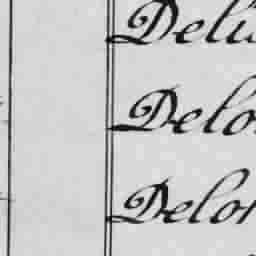 Deli
Delo
Delor